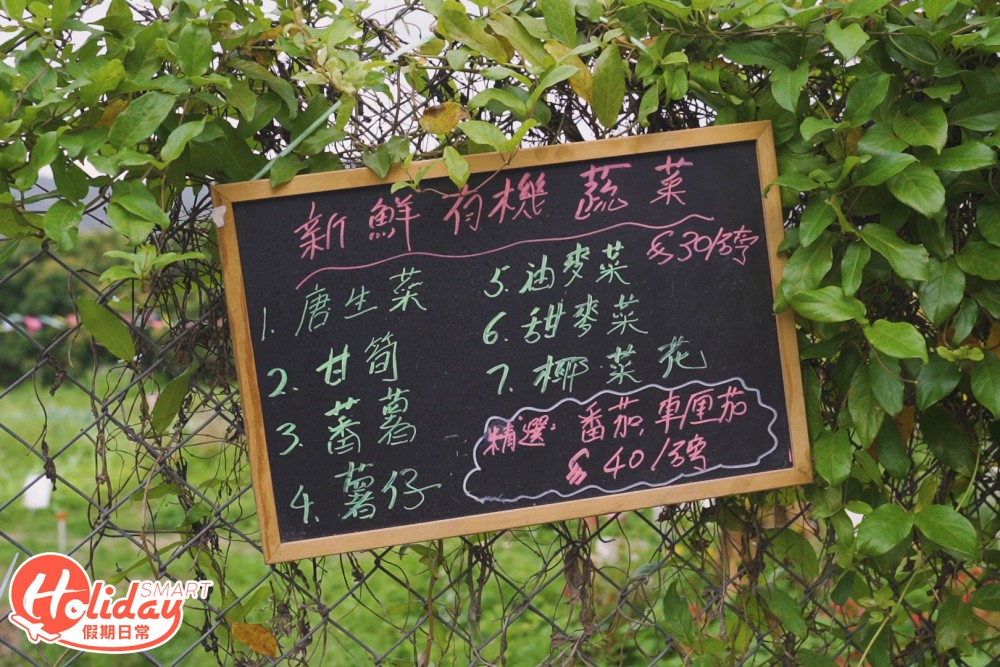 新鮮有機蔬菜
$30/磅
1. 唐生菜
2. 甘筍
3. 蕃薯
4. 薯仔
5. 油麥菜
6. 甜麥菜
7. 椰菜花
精選: 番茄, 車厘茄
$40/磅
Holiday SMART
假期日常